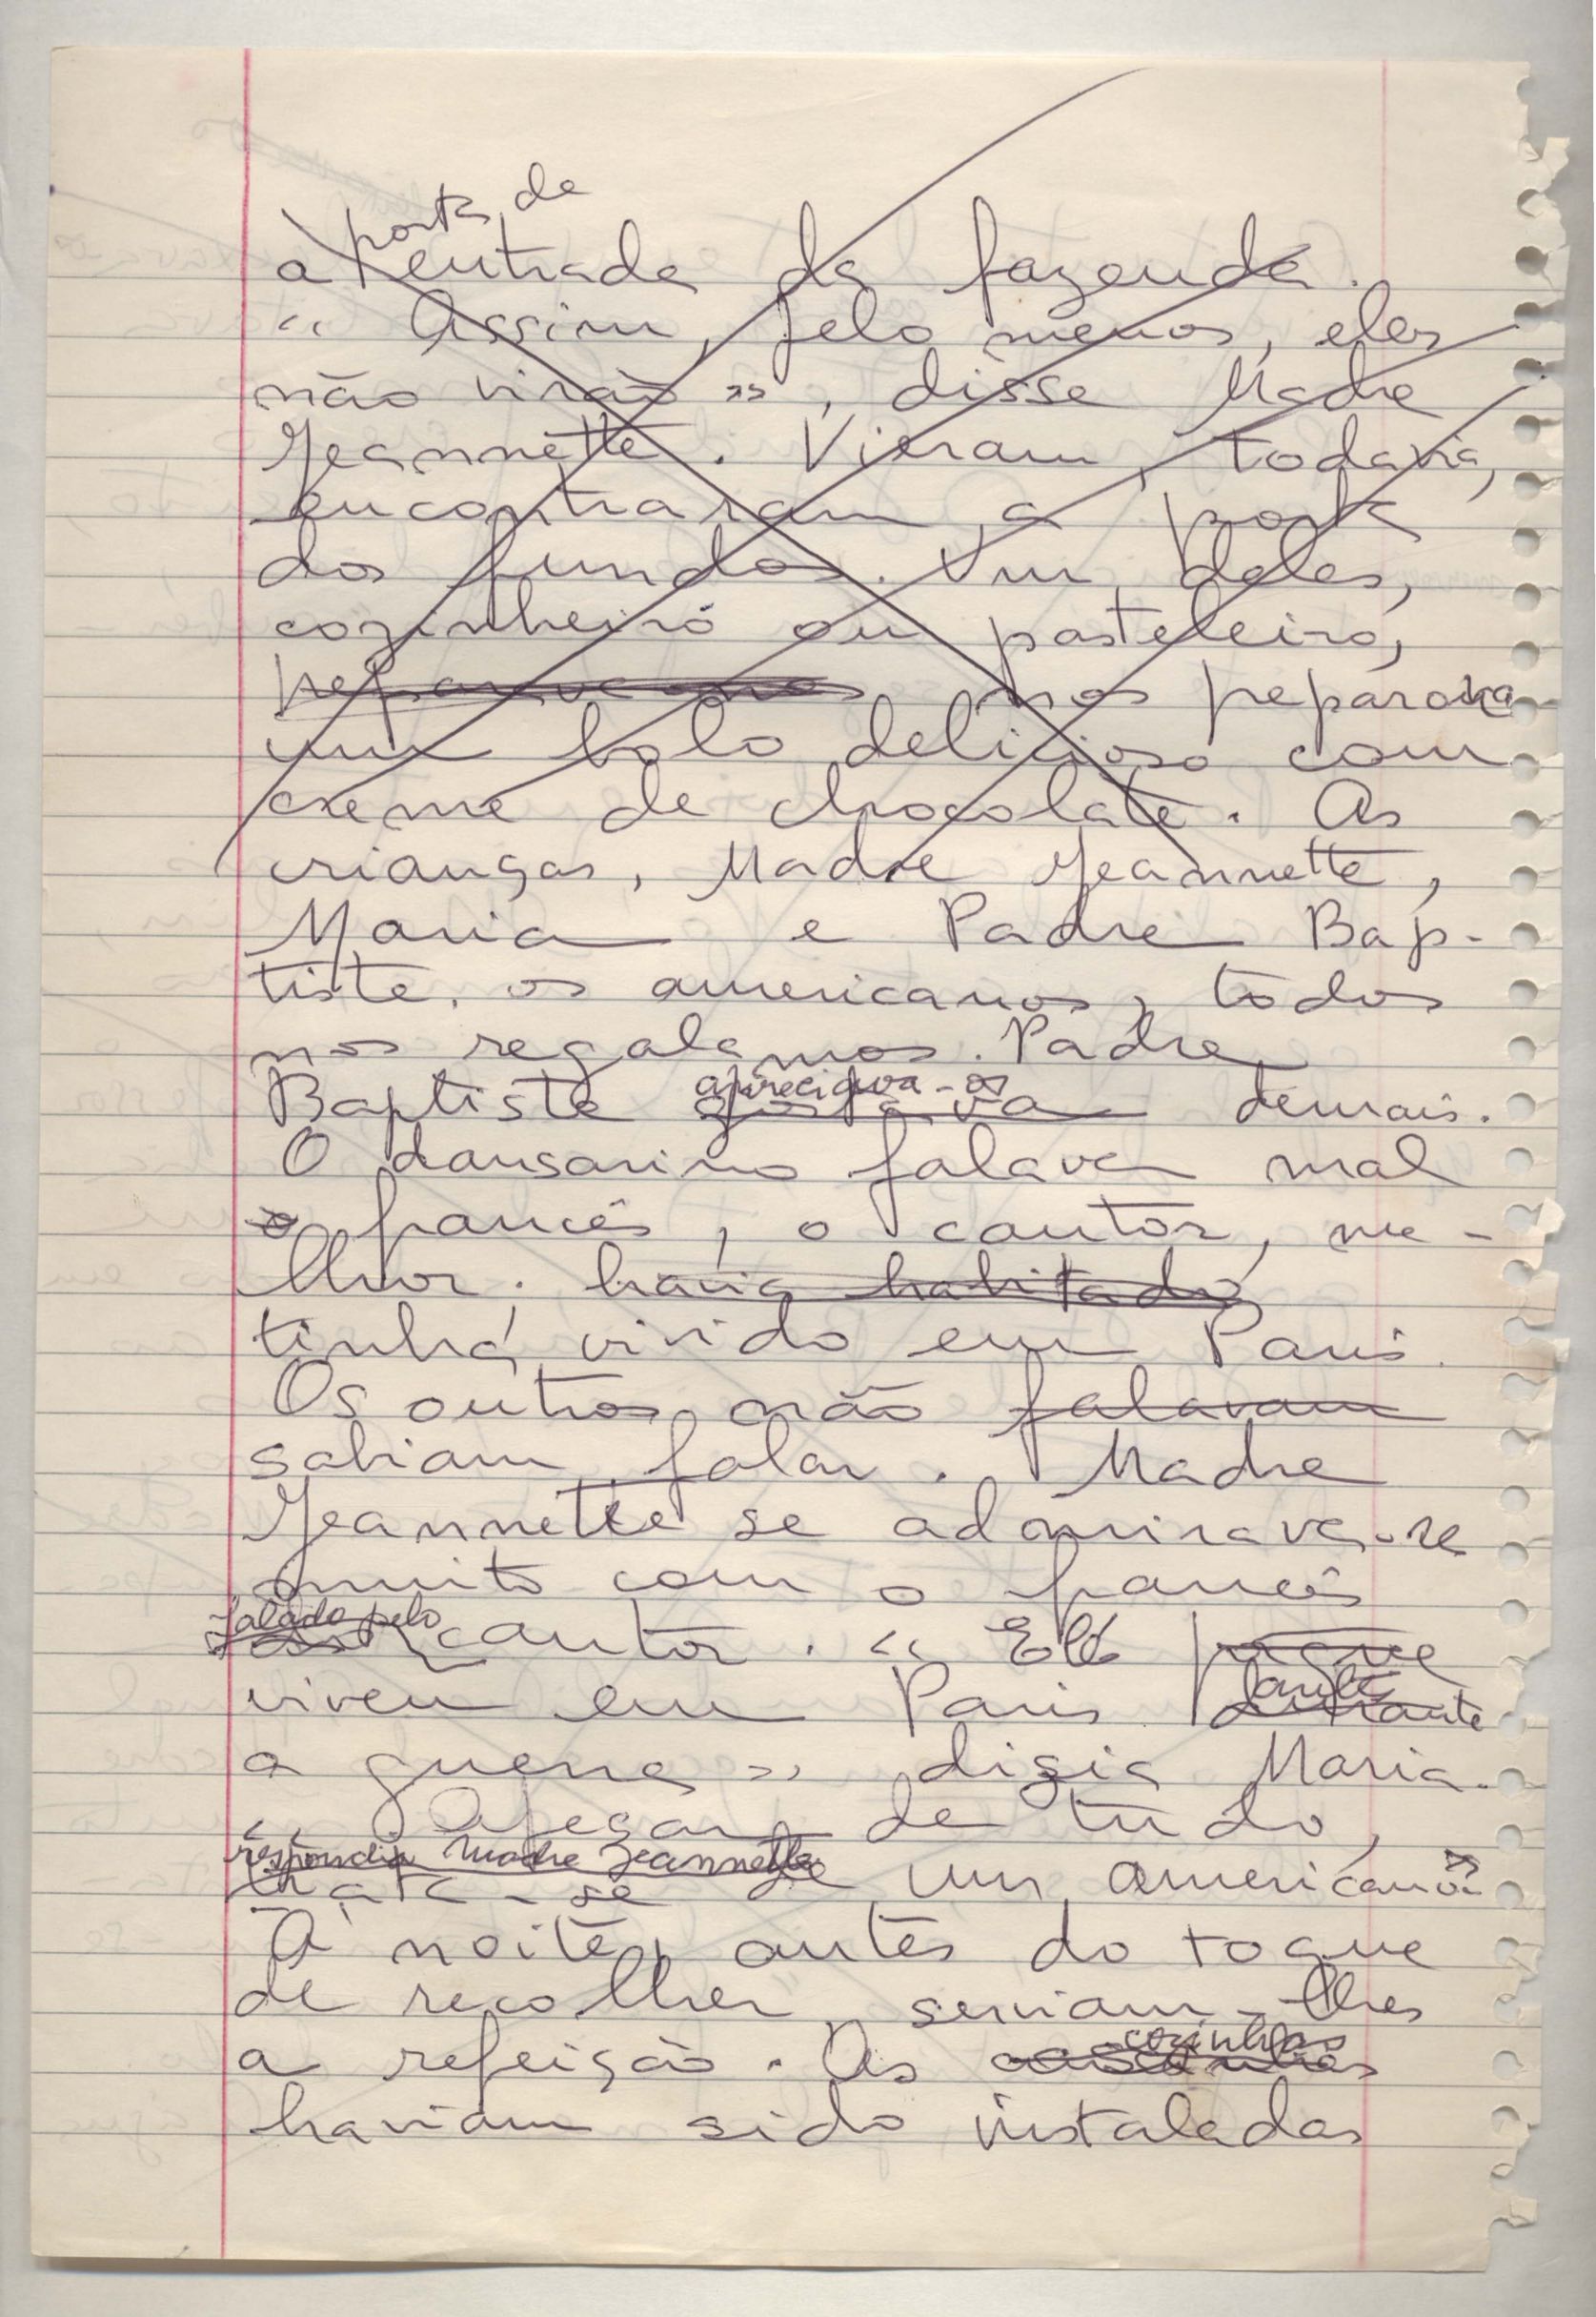 porta de
a entrada da fazenda.
« Assim, pelo menos, eles
não virão », disse Madre
Jeannette. Vieram, todavia,
encontraram a porta
dos fundos. Um deles,
cozinheiro ou pasteleiro,
preparava-nos nos preparava
um bolo delicioso com
creme de chocolate. As
crianças, Madre Jeannette,
Maria e Padre Bap-
tiste, os americanos, todos
nos regalamos. Padre
apreciava-os
Baptiste gostava demais.
O dansarino falava mal
o francês, o cantor, me-
lhor; havia habitado
tinha vivido em Paris.
Os outros não falavam
sabiam falar. Madre
Jeannette se admirava-se
muito com o francês
falado pelo
cantor. « Ele
antes
viveu em Paris durante
a guerra » dizia Maria.
« Apesar de tudo,
respondia Madre Jeannette
trata-se de um americano »
À noite, antes do toque
de recolher, serviam-lhes
cozinhas
a refeição. As
haviam sido instaladas